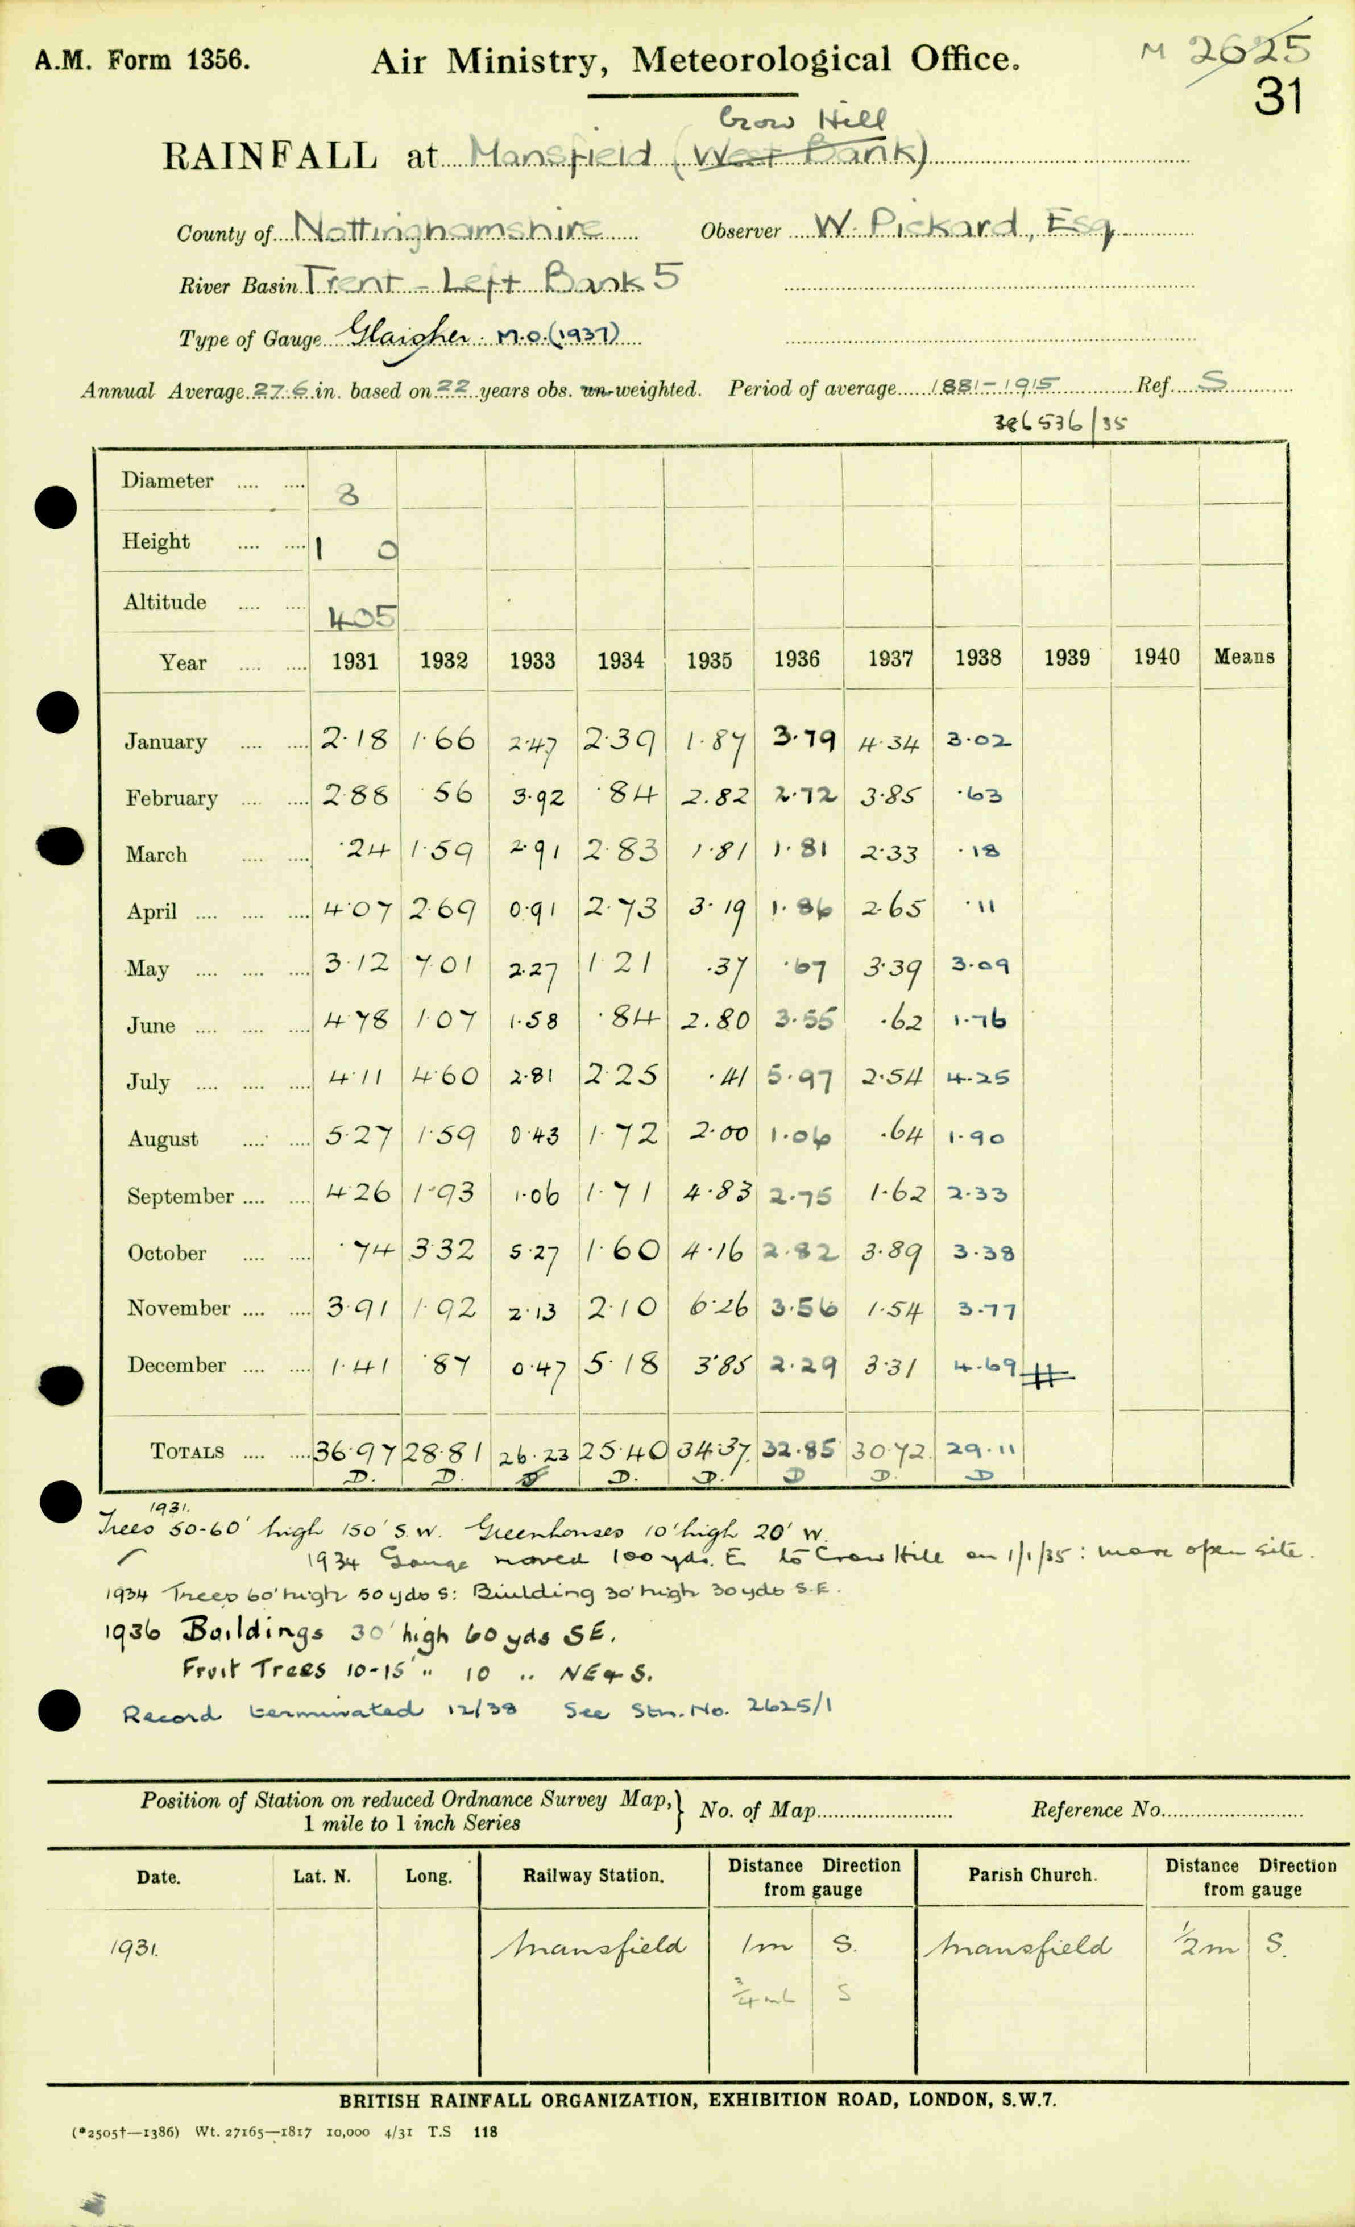 A.M. Form 1356.
Air Ministry, Meteorological Office.
M 2625
31
Crow Hill
RAINFALL at Mansfield (West Bank)
County of Nottinghamshire Observer W. Pickard, Esq
River Basin Trent - Left Bank 5
Type of Gauge Glaisher. M.O.(1937)
Annual Average 27.6 in. based on 22 years obs. un-weighted. Period of average 1881-1915 Ref. S
386536/35
Diameter .... .... 8
Height .... .... 1 0
Altitude .... .... 405
Year .... .... 1931 1932 1933 1934 1935 1936 1937 1938 1939 1940 Means
January .... .... 2.18 1.66 2.47 2.39 1.87 3.79 4.34 3.02
February .... .... 2.88 .56 3.92 .84 2.82 2.72 3.85 .63
March .... .... .24 1.59 2.91 2.83 1.81 1.81 2.33 .18
April .... .... .... 4.07 2.69 0.91 2.73 3.19 1.86 2.65 .11
May .... .... .... 3.12 7.01 2.27 1.21 .37 .67 3.39 3.09
June .... .... .... 4.78 1.07 1.58 .84 2.80 3.55 .62 1.76
July .... .... .... 4.11 4.60 2.81 2.25 .41 5.97 2.54 4.25
August .... .... 5.27 1.59 0.43 1.72 2.00 1.06 .64 1.90
September .... .... 4.26 1.93 1.06 1.71 4.83 2.75 1.62 2.33
October .... .... .74 3.32 5.27 1.60 4.16 2.82 3.89 3.38
November .... .... 3.91 1.92 2.13 2.10 6.26 3.56 1.54 3.77
December .... .... 1.41 .87 0.47 5.18 3.85 2.29 3.31 4.69
TOTALS .... .... 36.97 28.81 26.23 25.40 34.37 32.85 30.72 29.11
D. D. D. D. D D. D
1931.
Trees 50-60' high 150' S.W. Greenhouses 10' high 20' W.
1934 Gauge moved 100 yds. E to Crow Hill on 1/1/35: more open site.
1934 Trees 60' high 50 yds S: Building 30' high 30 yds S.E.
1936 Buildings 30' high 60 yds SE.
Fruit Trees 10-15' " 10 " NE & S.
Record terminated 12/38 See Stn. No. 2625/1
Position of Station on reduced Ordnance Survey Map, } No. of Map Reference No.
1 mile to 1 inch Series
Date. Lat. N. Long. Railway Station. Distance Direction from gauge Parish Church. Distance Direction from gauge
1931. Mansfield 1m S. Mansfield ½m S.
¾ml S
BRITISH RAINFALL ORGANIZATION, EXHIBITION ROAD, LONDON, S.W.7.
(*2505†—1386) Wt. 27165—1817 10,000 4/31 T.S 118